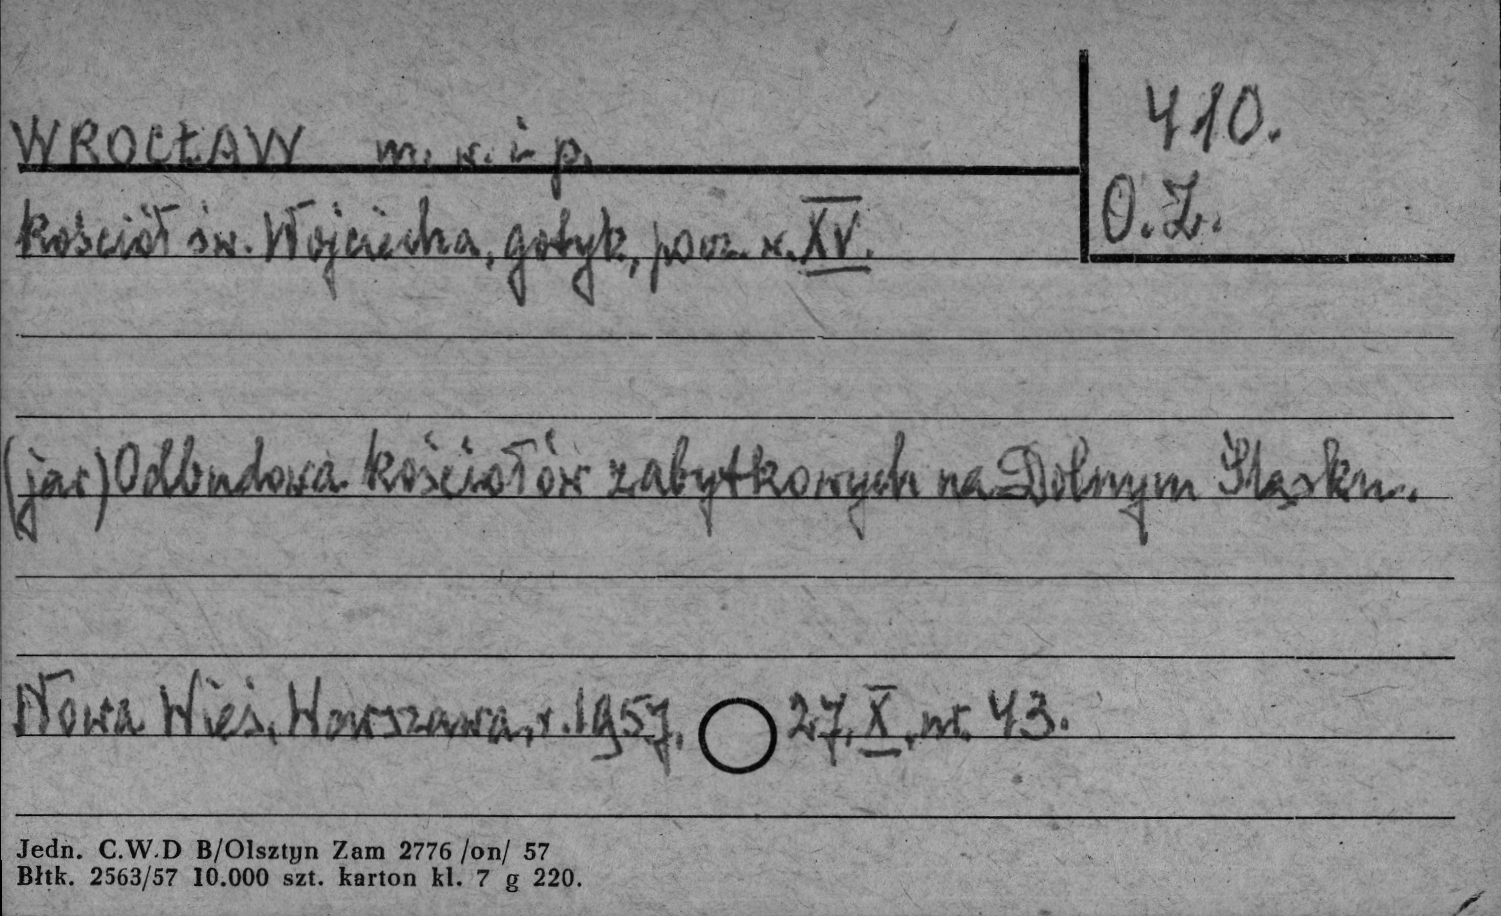 WROCŁAW m. w. i p.
410.
O.Z.
Kościół św. Wojciecha, gotyk, pocz. w. XV.
(jar) Odbudowa kościołów zabytkowych na Dolnym Śląsku.
Nowa Wieś, Warszawa, r. 1957, 27, X, nr. 43.
Jedn. C.W.D B/Olsztyn Zam 2776 /on/ 57
Błtk. 2563/57 10.000 szt. karton kl. 7 g 220.